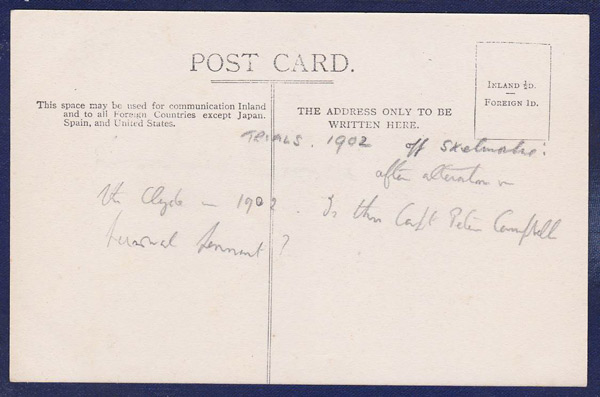 POST CARD.
INLAND ½D.
FOREIGN 1D.
This space may be used for communication Inland
and to all Foreign Countries except Japan.
Spain, and United States.
THE ADDRESS ONLY TO BE
WRITTEN HERE.
TRIALS. 1902 off Skelmorlie:
after alteration
Clyde in 1902. Is this Capt Peter Campbell
?